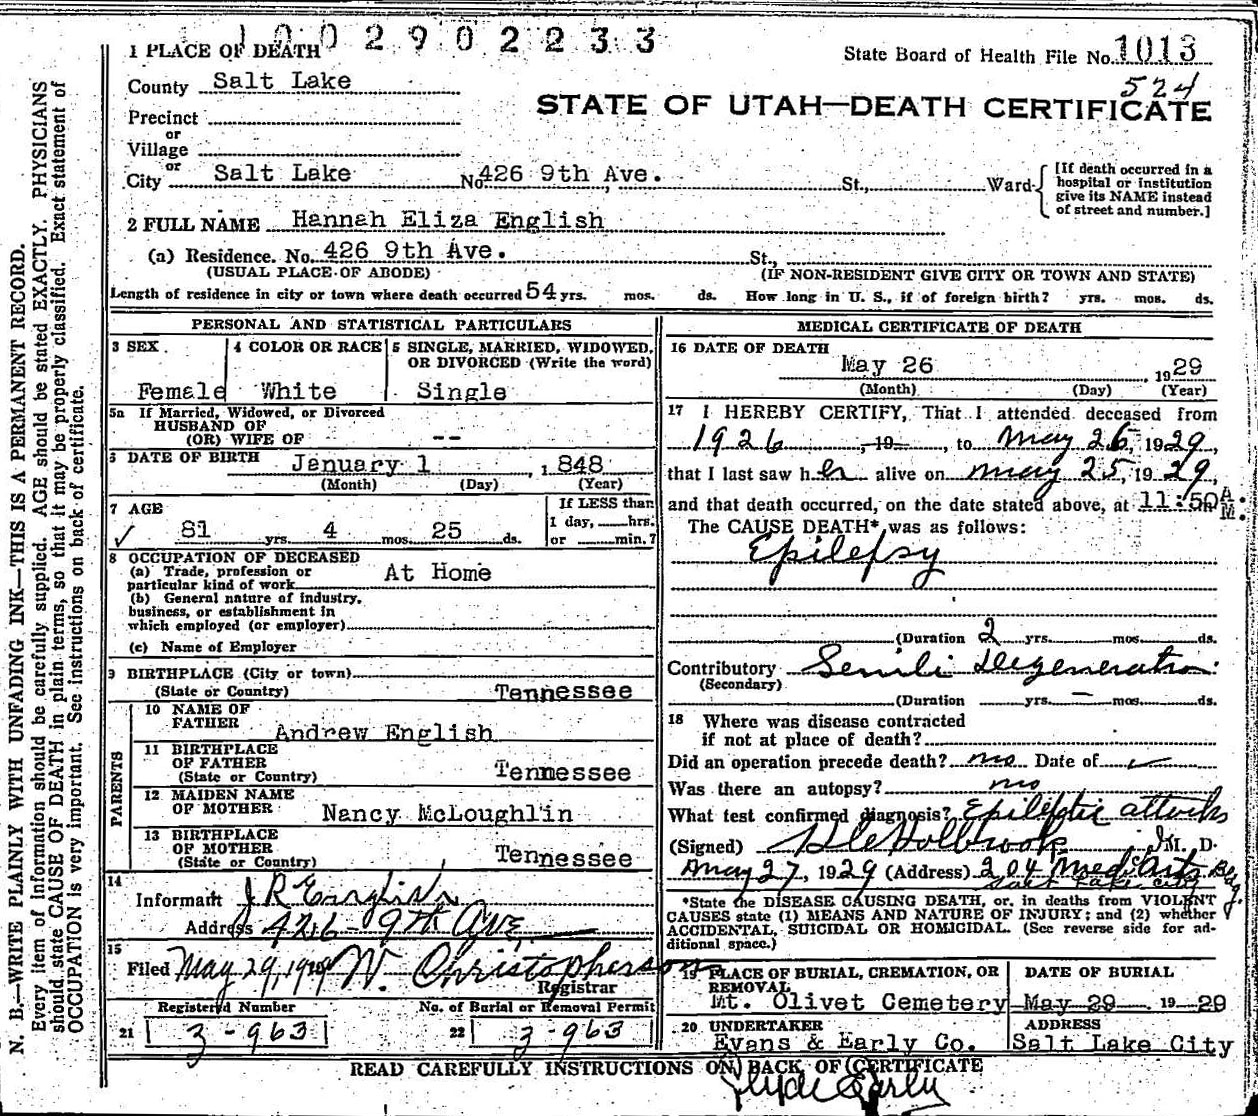 1002902233
1 PLACE OF DEATH
State Board of Health File No. 1013
County Salt Lake
524
STATE OF UTAH—DEATH CERTIFICATE
Precinct
or
Village
or
City Salt Lake No. 426 9th Ave. St., Ward
[If death occurred in a
hospital or institution
give its NAME instead
of street and number.]
2 FULL NAME Hannah Eliza English
(a) Residence. No. 426 9th Ave. St.,
(USUAL PLACE OF ABODE) (IF NON-RESIDENT GIVE CITY OR TOWN AND STATE)
Length of residence in city or town where death occurred 54 yrs. mos. ds. How long in U. S., if of foreign birth? yrs. mos. ds.
PERSONAL AND STATISTICAL PARTICULARS
3 SEX
Female
4 COLOR OR RACE
White
5 SINGLE, MARRIED, WIDOWED,
OR DIVORCED (Write the word)
Single
5a If Married, Widowed, or Divorced
HUSBAND OF
(OR) WIFE OF --
6 DATE OF BIRTH January 1 , 1848
(Month) (Day) (Year)
7 AGE
✓ 81 yrs. 4 mos. 25 ds.
If LESS than
1 day, hrs.
or min.?
8 OCCUPATION OF DECEASED
(a) Trade, profession or
particular kind of work At Home
(b) General nature of industry,
business, or establishment in
which employed (or employer)
(c) Name of Employer
9 BIRTHPLACE (City or town)
(State or Country) Tennessee
PARENTS
10 NAME OF
FATHER Andrew English
11 BIRTHPLACE
OF FATHER
(State or Country) Tennessee
12 MAIDEN NAME
OF MOTHER Nancy McLoughlin
13 BIRTHPLACE
OF MOTHER
(State or Country) Tennessee
14
Informant J R English
Address 426-9th Ave
15
Filed May 29, 1929 W. Christopherson
Registrar
Registered Number No. of Burial or Removal Permit
21 3-963 22 3-963
MEDICAL CERTIFICATE OF DEATH
16 DATE OF DEATH
May 26 , 1929
(Month) (Day) (Year)
17 I HEREBY CERTIFY, That I attended deceased from
1926 , 19 to May 26, 1929,
that I last saw her alive on May 25, 1929,
and that death occurred, on the date stated above, at 11:50 A M.
The CAUSE DEATH* was as follows:
Epilepsy
(Duration 2 yrs. mos. ds.
Contributory Senile Degeneration
(Secondary)
(Duration yrs. — mos. ds.
18 Where was disease contracted
if not at place of death?
Did an operation precede death? no Date of ✓
Was there an autopsy? no
What test confirmed diagnosis? Epileptic attacks
(Signed) Holbrook M. D.
May 27, 1929 (Address) 204 Med Arts Bldg.
Salt Lake City
*State the DISEASE CAUSING DEATH, or, in deaths from VIOLENT
CAUSES state (1) MEANS AND NATURE OF INJURY; and (2) whether
ACCIDENTAL, SUICIDAL OR HOMICIDAL. (See reverse side for ad-
ditional space.)
19 PLACE OF BURIAL, CREMATION, OR
REMOVAL
Mt. Olivet Cemetery
DATE OF BURIAL
May 29 19 29
20 UNDERTAKER
Evans & Early Co.
ADDRESS
Salt Lake City
READ CAREFULLY INSTRUCTIONS ON BACK OF CERTIFICATE
Clyde Early
N. B.—WRITE PLAINLY WITH UNFADING INK—THIS IS A PERMANENT RECORD.
Every item of information should be carefully supplied. AGE should be stated EXACTLY. PHYSICIANS
should state CAUSE OF DEATH in plain terms, so that it may be properly classified. Exact statement of
OCCUPATION is very important. See instructions on back of certificate.